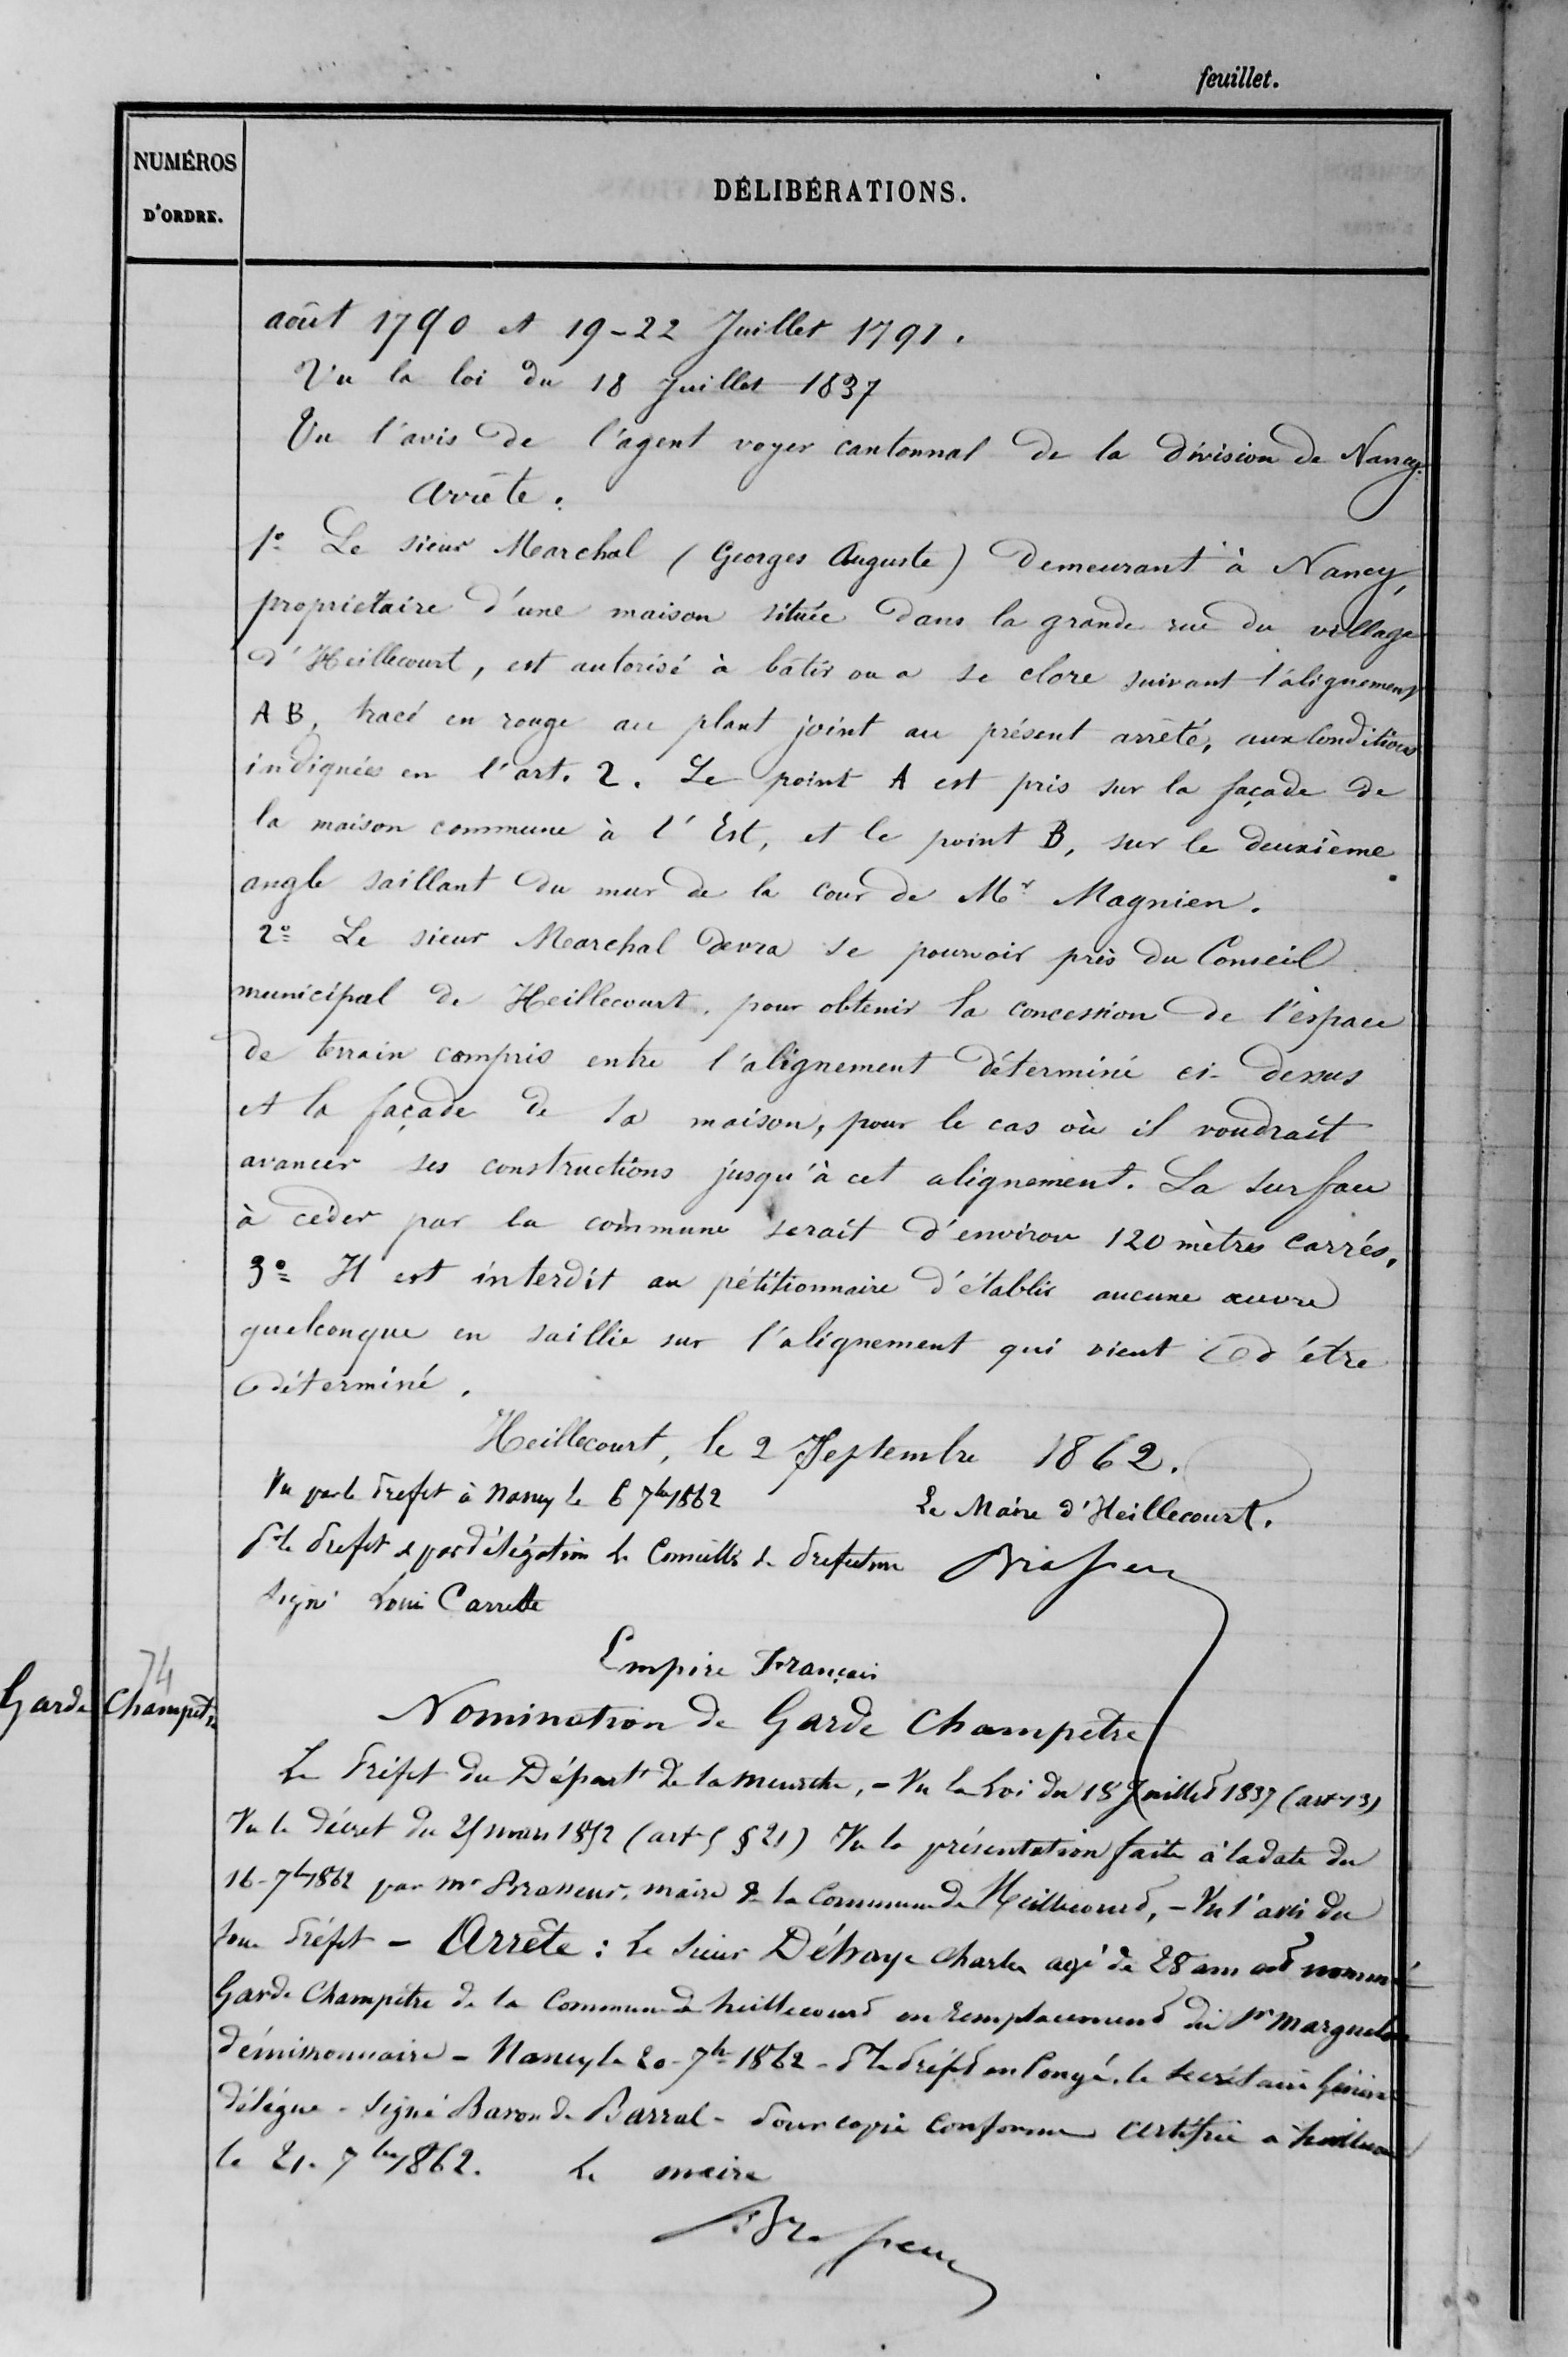 feuillet.
NUMÉROS
D'ORDRE.
DÉLIBÉRATIONS.
août 1790 et 19-22 Juillet 1791.
Vu la loi du 18 Juillet 1837
Vu l'avis de l'agent voyer cantonnal de la division de Nancy.
Arrête :
1º Le sieur Marchal (Georges Auguste) demeurant à Nancy,
propriétaire d'une maison située dans la grande rue du village
d'Heillecourt, est autorisé à bâtir ou a se clore suivant l'alignement
A B, tracé en rouge au plant joint au présent arrêté, aux Conditions
indiquées en l'art. 2. Le point A est pris sur la façade de
la maison commune à l'Est, et le point B, sur le deuxième
angle saillant du mur de la cour de Mr Magnien.
2º Le sieur Marchal devra se pourvoir près du Conseil
municipal de Heillecourt, pour obtenir la concession de l'espace
de terrain compris entre l'alignement déterminé ci-dessus
et la façade de sa maison, pour le cas où il voudrait
avancer ses constructions jusqu'à cet alignement. La surface
à céder par la commune serait d'environ 120 mètres carrés.
3º Il est interdit au pétitionnaire d'établir aucune œuvre
quelconque en saillie sur l'alignement qui vient d'être
déterminé.
Heillecourt, le 2 Septembre 1862.
Vu par le Préfet à Nancy le 6 7bre 1862
Le Maire d'Heillecourt.
Pr le Préfet & par délégation le Conseiller de Préfecture
Brasseur
Signé Louis Carrette
Empire Français
74
Garde Champêtre
Nomination de Garde Champêtre
Le Préfet du Départt de la Meurthe, - Vu la Loi du 18 Juillet 1837 (art 13)
Vu le décret du 25 mars 1852 (art 5 § 21) Vu la présentation faite à la date du
16-7bre 1862 par Mr Brasseur, maire de la Commune de Heillecourt, - Vu l'avis du
Sous Préfet - Arrête : Le Sieur Déhaye Charles agé de 28 ans est nommé
Garde Champêtre de la Commune de heillecourt en remplacement du Sr
démissionnaire - Nancy le 20-7bre 1862 - Pr le Préfet en Congé, le Secrétaire Général
délégué - Signé Baron de Barral - Pour copie conforme certifiée à heillecourt
le 21. 7bre 1862. Le maire
Brasseur